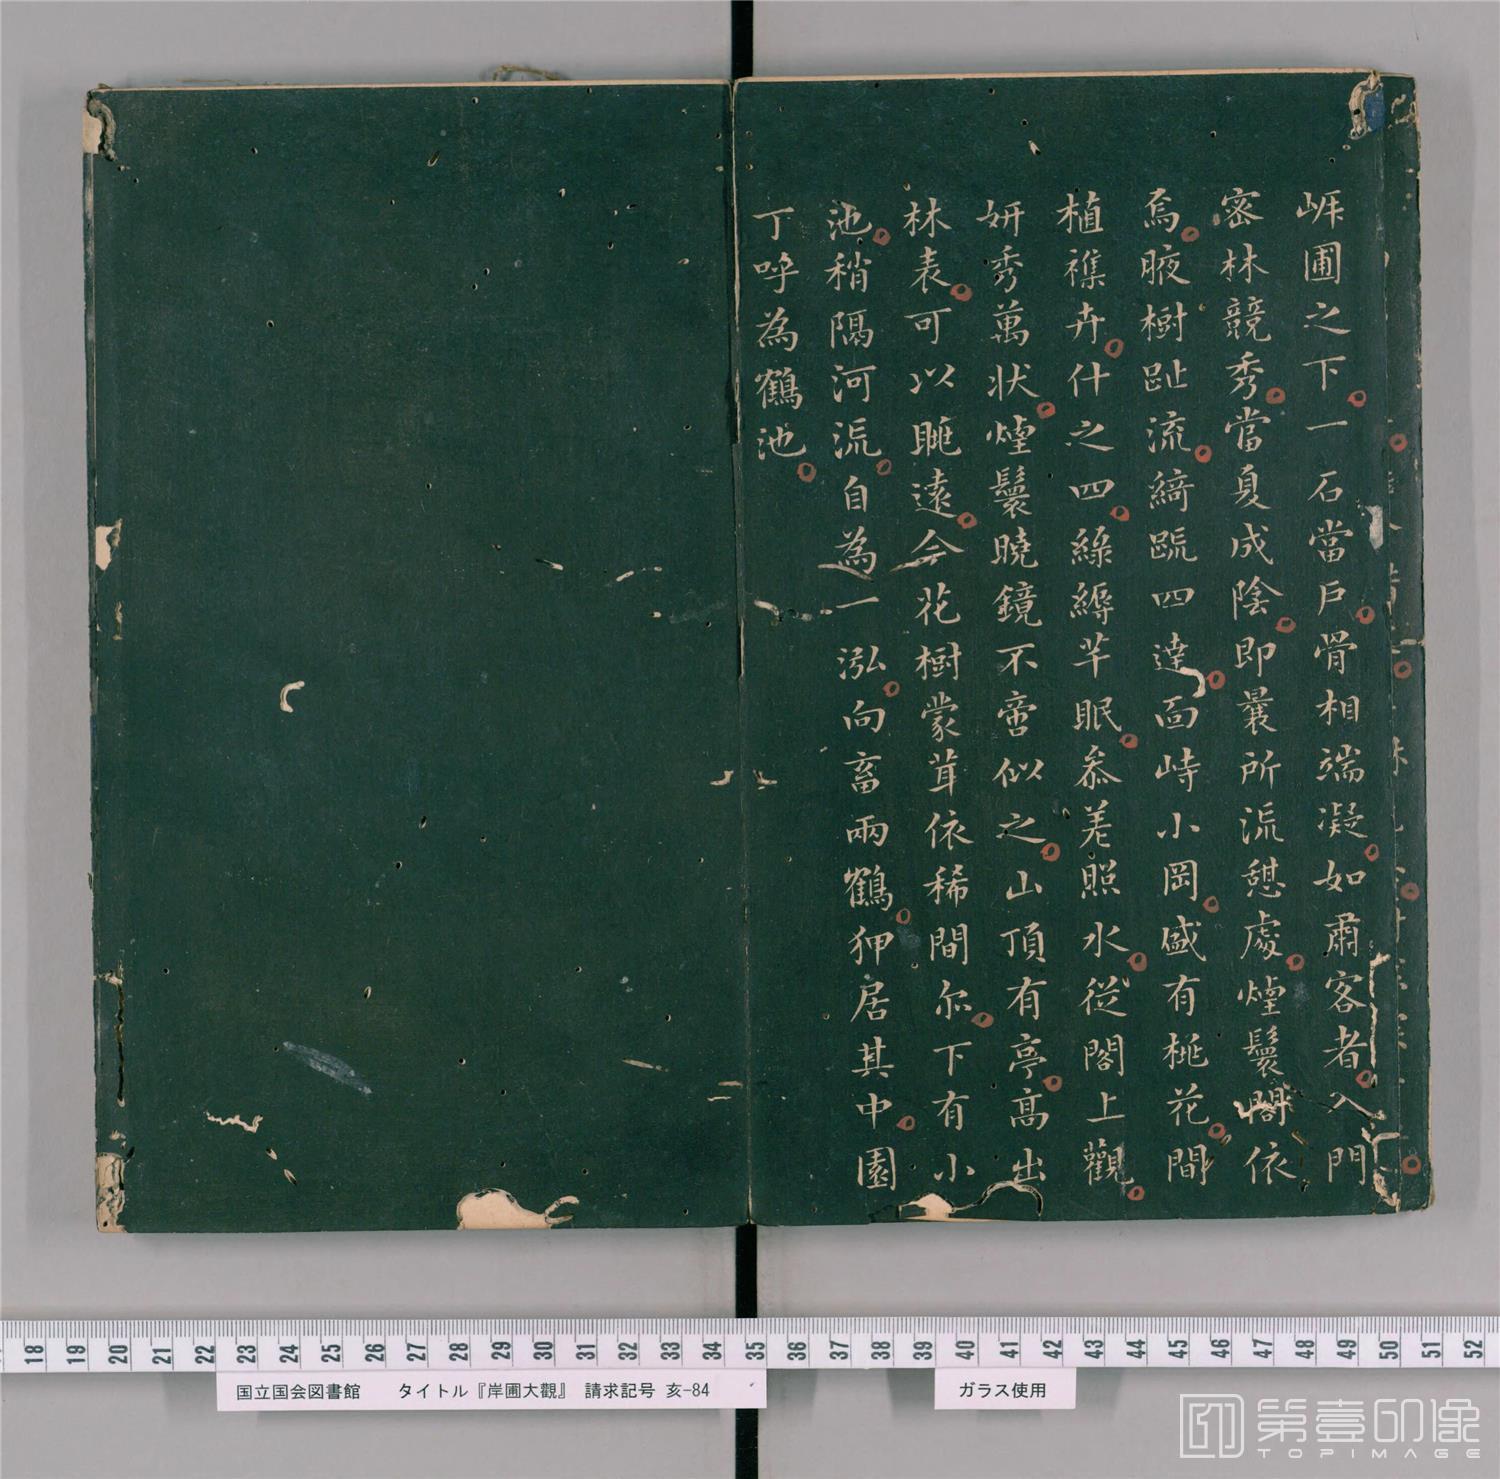 崕圃之下一石當戶骨相端凝如肅客者入門
密林競秀當夏成陰即曩所流憩處煙鬟閣依
烏腋樹趾流綺䟽四達面峙小岡盛有桃花間
植襍卉什之四綠縟芊眠叅差照水從閣上觀
妍秀萬狀煙鬟曉鏡不啻似之山頂有亭高出
林表可以眺遠今花樹蒙茸依稀間尔下有小
池稍隔河流自為一泓向畜兩鶴狎居其中園
丁呼為鶴池
18 19 20 21 22 23 24 25 26 27 28 29 30 31 32 33 34 35 36 37 38 39 40 41 42 43 44 45 46 47 48 49 50 51 52
国立国会図書館 タイトル『岸圃大觀』 請求記号 亥-84
ガラス使用
第壹印像
TOPIMAGE